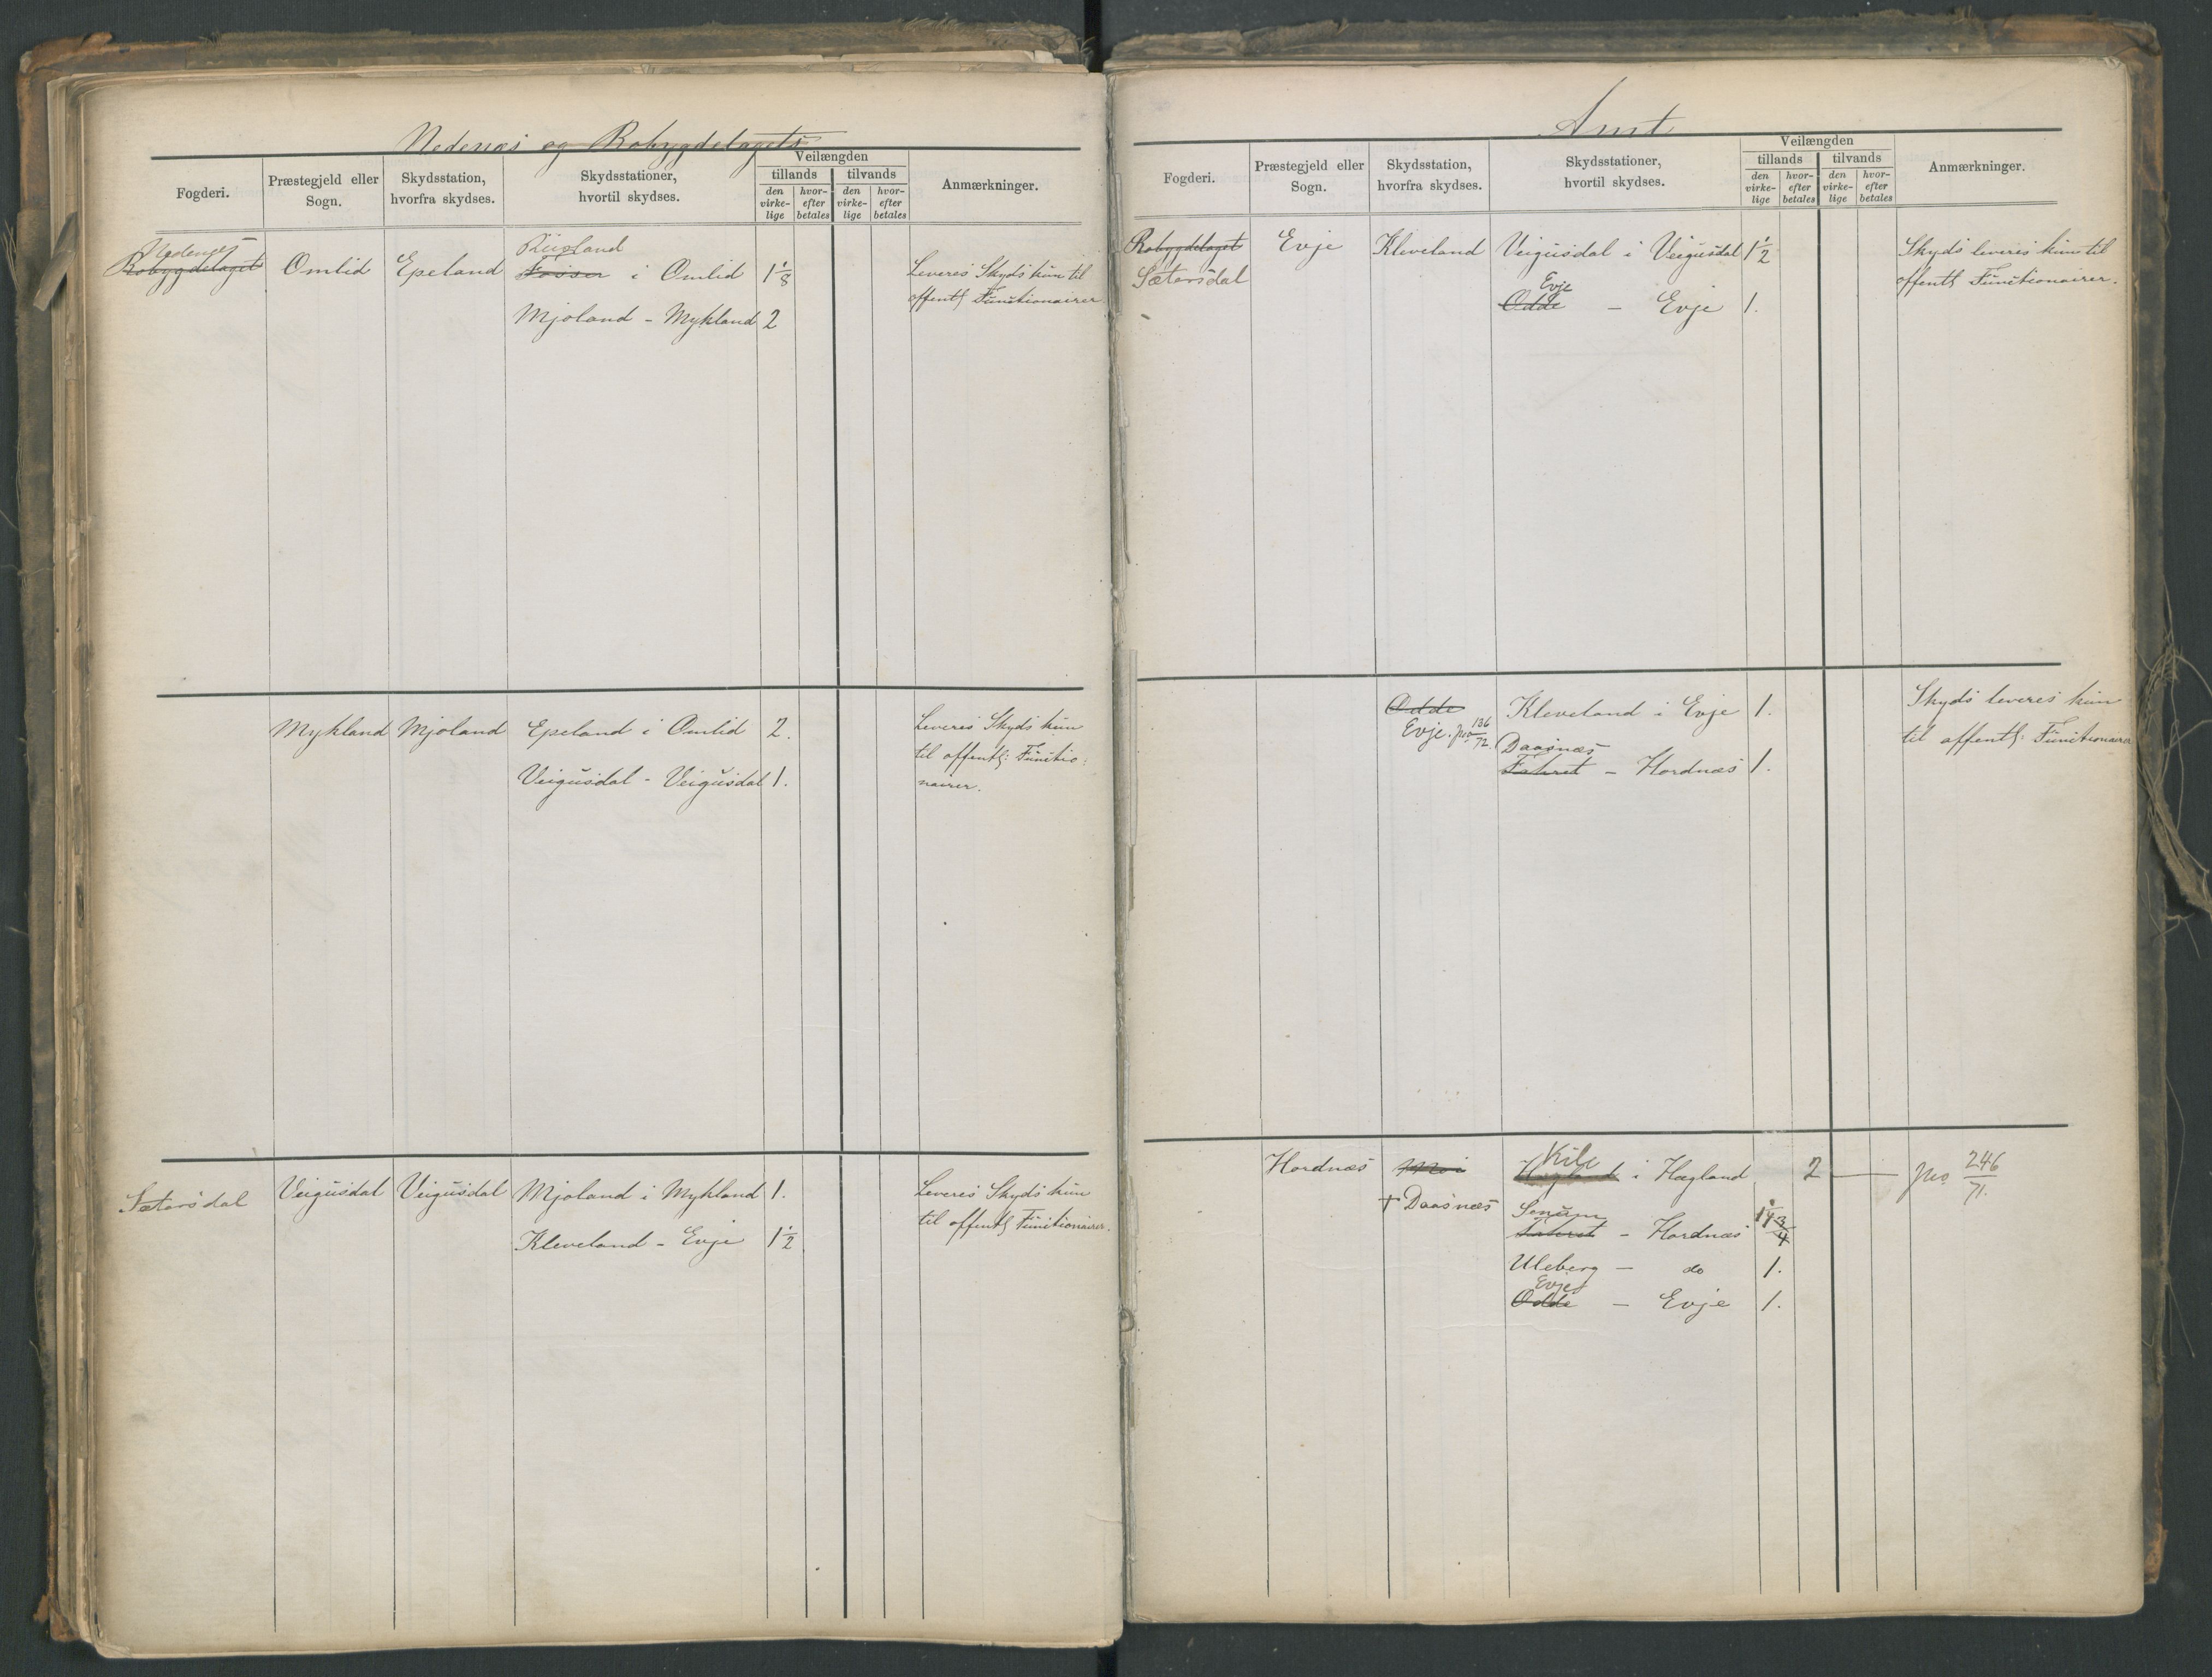 Nedenæs og Robygdelagets
Fogderi.
Præstegjeld eller
Sogn.
Skydsstation,
hvorfra skydses.
Skydsstationer,
hvortil skydses.
Veilængden
tillands tilvands
den virke- lige hvor- efter betales den virke- lige hvor- efter betales
Anmærkninger.
Nedenæs
Robygdelaget Omlid Epeland
Rüpland
Fosser i Omlid 1 1/8
Mjoland - Mykland 2
Leveres Skyds kun til
offentl: Functionairer.
Mykland Mjoland Epeland i Omlid 2.
Veigusdal - Veigusdal 1.
Leveres Skyds kun
til offentl: Functio-
nairer.
Sætersdal Veigusdal Veigusdal Mjoland i Mykland 1.
Kleveland - Evje 1 1/2
Leveres Skyds kun
til offentl: Functionairer.
Amt
Fogderi.
Præstegjeld eller
Sogn.
Skydsstation,
hvorfra skydses.
Skydsstationer,
hvortil skydses.
Veilængden
tillands tilvands
den virke- lige hvor- efter betales den virke- lige hvor- efter betales
Anmærkninger.
Robygdelaget Evje Kleveland Veigusdal i Veigusdal 1 1/2
Sætersdal
Evje
Odde - Evje 1.
Skyds leveres kun til
offentl: Functionairer.
Odde Kleveland i Evje 1.
Evje. jno 136/72.
Daasnæs
- Hordnæs 1.
Skyds leveres kun
til offentl: Functionairer
Hordnæs Moi
Kile
Hægland i Hægland 2 — jno 246/71.
+ Daasnæs
Senum
- Hordnæs 1 1/4 3/4
Uleberg - do 1.
Evje
Odde - Evje 1.